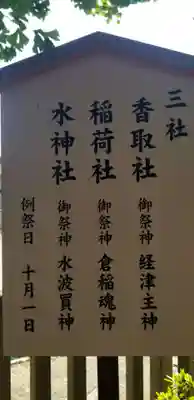 三社
香取社 御祭神 経津主神
稲荷社 御祭神 倉稲魂神
水神社 御祭神 水波買神
例祭日 十月一日